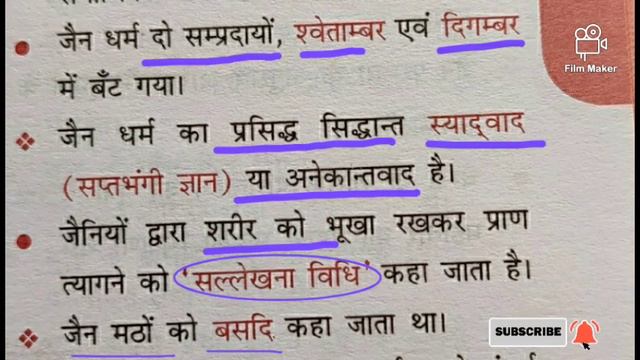 जैन धर्म दो सम्प्रदायों, श्वेताम्बर एवं दिगम्बर
Film Maker
में बँट गया।
जैन धर्म का प्रसिद्ध सिद्धान्त स्याद्‌वाद
(सप्तभंगी ज्ञान) या अनेकान्तवाद है।
जैनियों द्वारा शरीर को भूखा रखकर प्राण
त्यागने को 'सल्लेखना विधि' कहा जाता है।
जैन मठों को बसदि कहा जाता था।
SUBSCRIBE